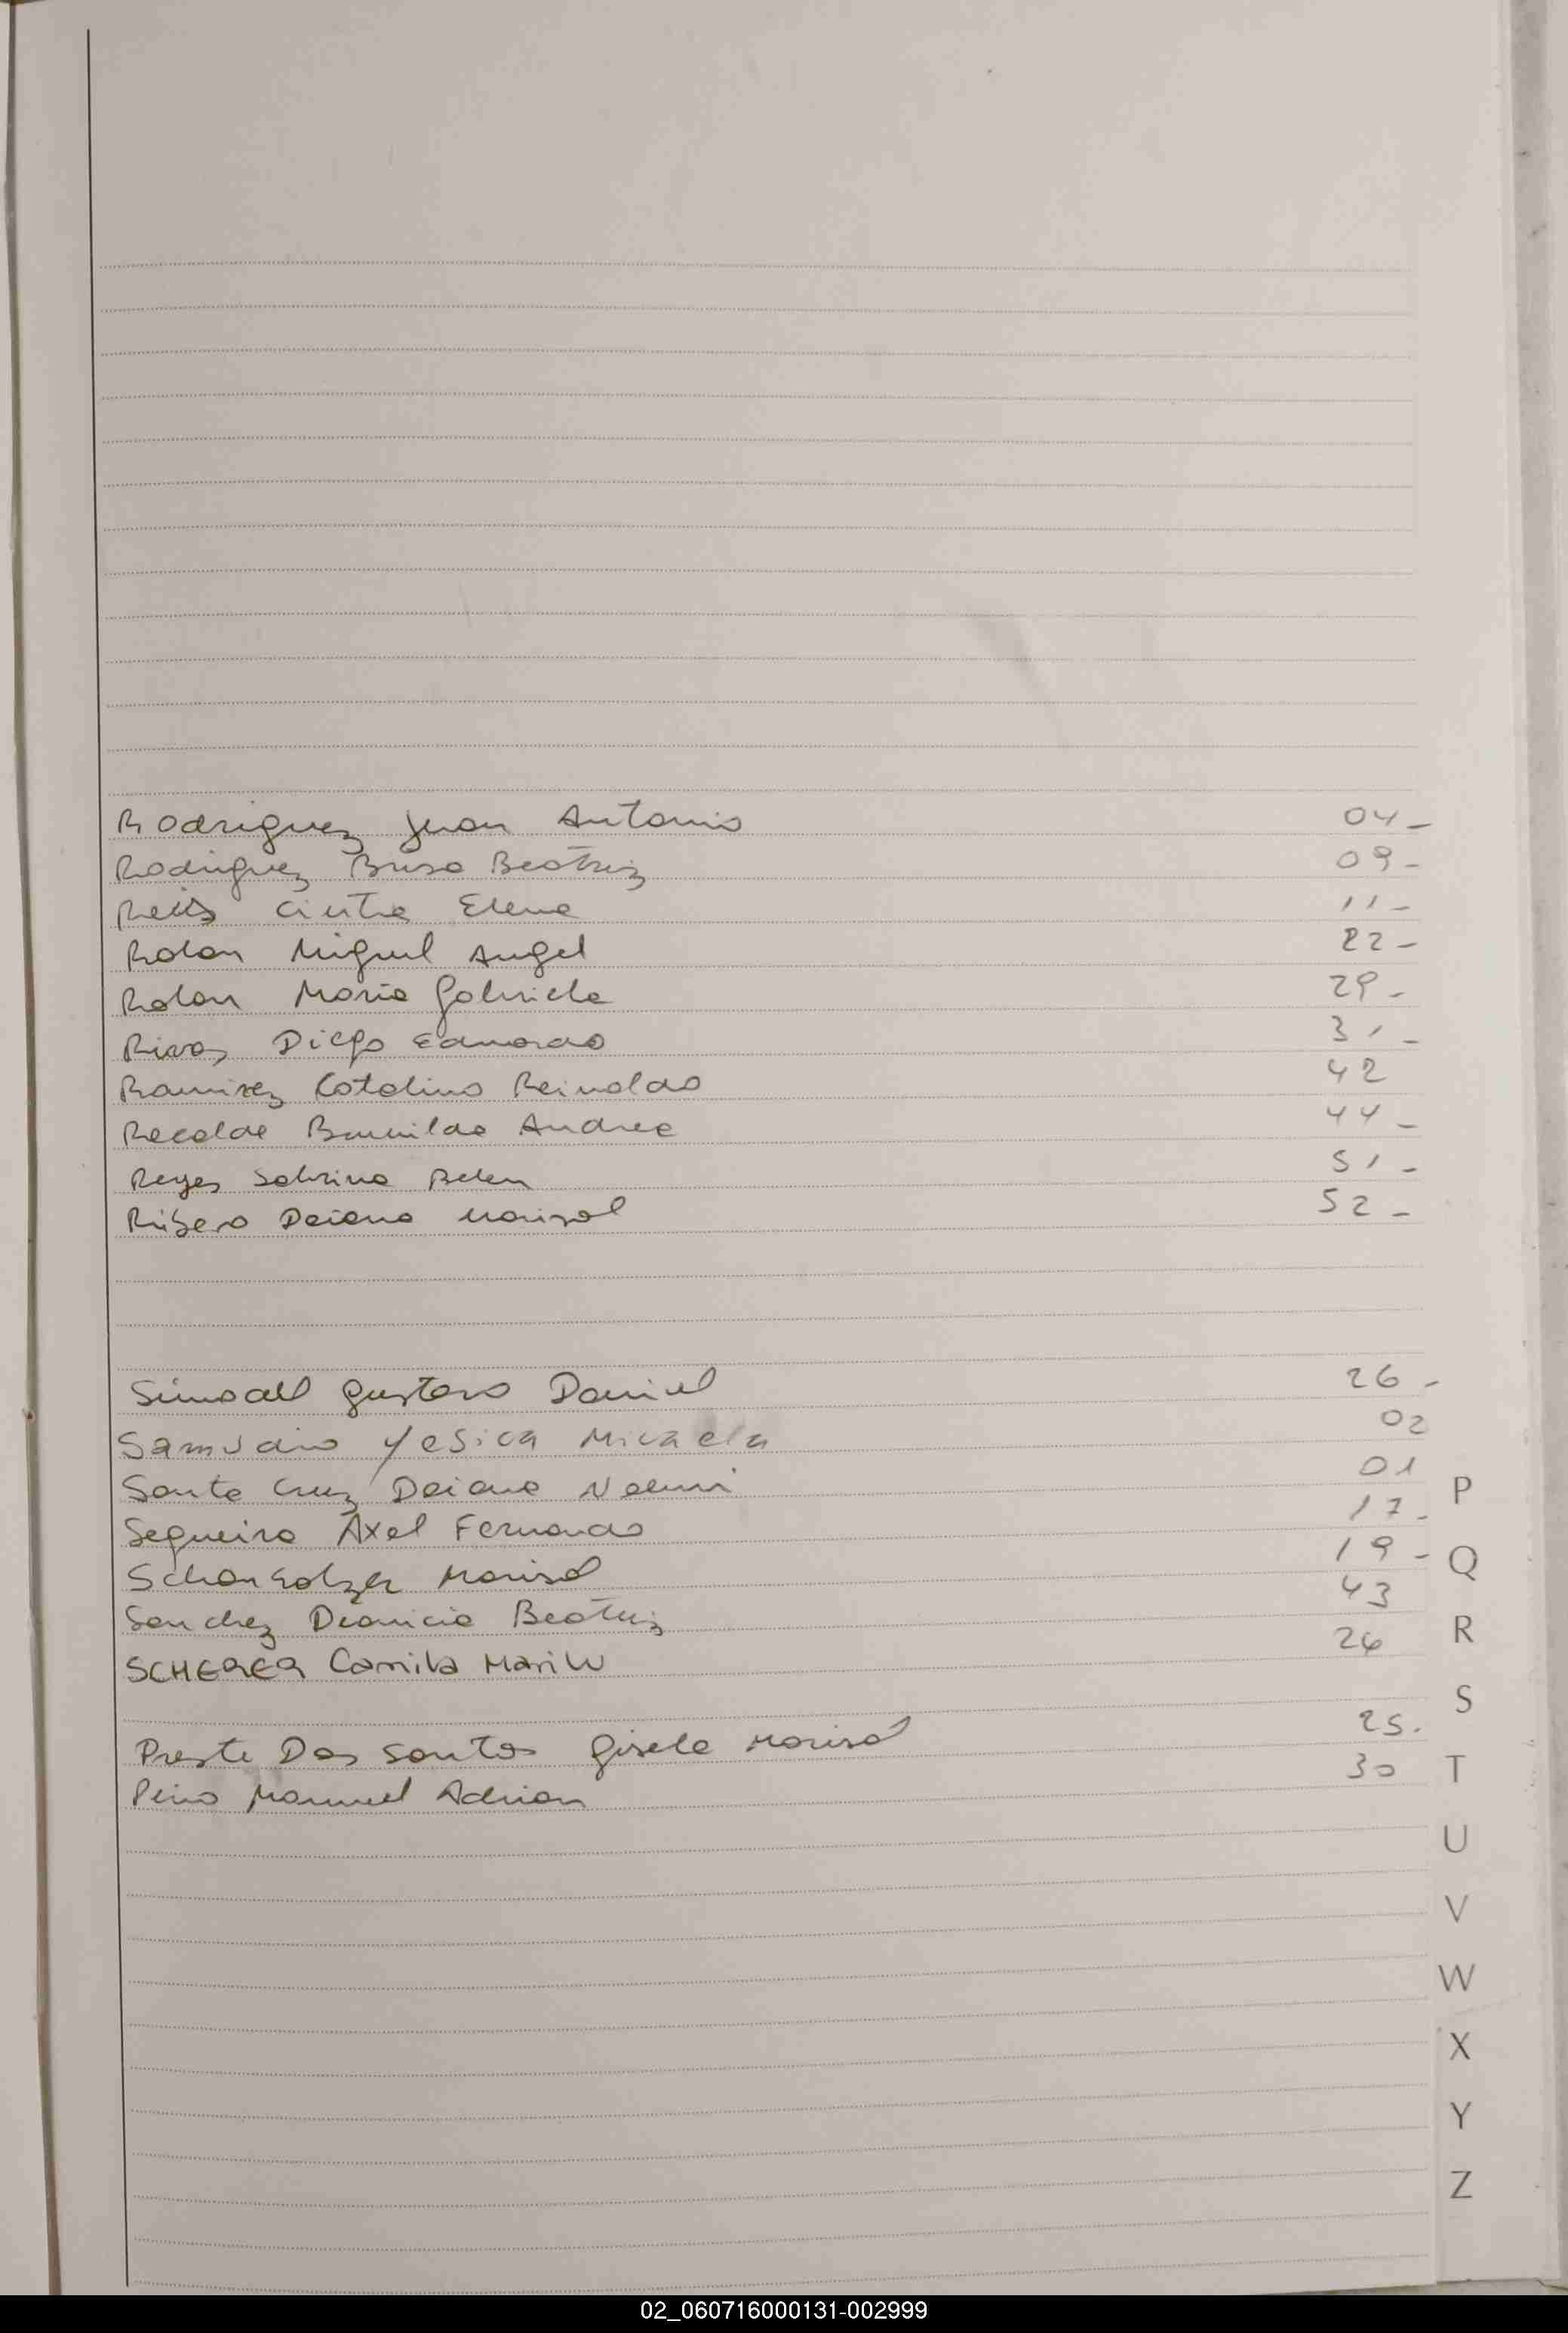 Rodriguez Juan Antonio 04-
Rodriguez Brisa Beatriz 09-
Reis Cintia Elena 11-
Rolon Miguel Angel 22-
Rolon Maria Gabriela 29-
Rivas Diego Eduardo 31-
Ramirez Catalino Reinaldo 42
Recalde Andrea 44-
Reyes Sabrina Belen 51-
Ribero Daiana Marisol 52-
Gustavo Daniel 26-
Samudio Yesica Micaela 02
Santa Cruz Daiana Noemi 01
Sequeira Axel Fernando 17-
Marisol 19-
Sanchez Dionicia Beatriz 43
SCHERER Camila Marilu 26
Preste Dos Santos Gisela Marisol 25.
Pino Manuel Adrian 30
P
Q
R
S
T
U
V
W
X
Y
Z
02_060716000131-002999